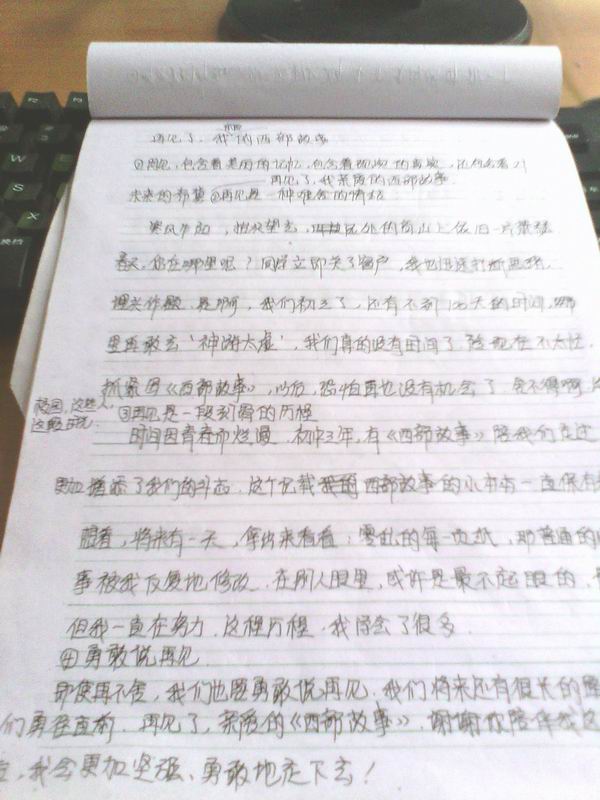 亲爱
再见了,我的西部故事
①再见,包含着美丽的记忆,包含着现实的真实,还包含着对
再见了,我亲爱的西部故事.
未来的希冀 ②再见是一种难舍的情怀
寒风乍起,抬头望去,的荷山上依旧一片
春天,你在哪里呢?同学立即关了窗户,我也迅速打断思绪,
埋头作题.是啊,我们初三了,还有不到120天的时间,哪
里再敢去'神游太虚',我们真的没有时间了 趁现在不太忙,
抓紧写《西部故事》,以后,恐怕再也没有机会了 舍不得啊
校园,这些人,
这般时光.
③再见是一段刻骨的历程
时间因青春而烂漫.初中3年,有《西部故事》陪我们走过
更加增添了我们的斗志.这个记载西部故事的小本本一直保存
跟着,将来有一天,拿出来看看:零乱的每一页纸,那普通的
事被我反复地修改.在别人眼里,或许是最不起眼的,
但我一直在努力.这程历程,我学会了很多.
④勇敢说再见
即使再不舍,我们也要勇敢说再见.我们将来还有很长的
们勇往直前.再见了,亲爱的《西部故事》.谢谢你陪伴我
,我会更加坚强、勇敢地走下去!